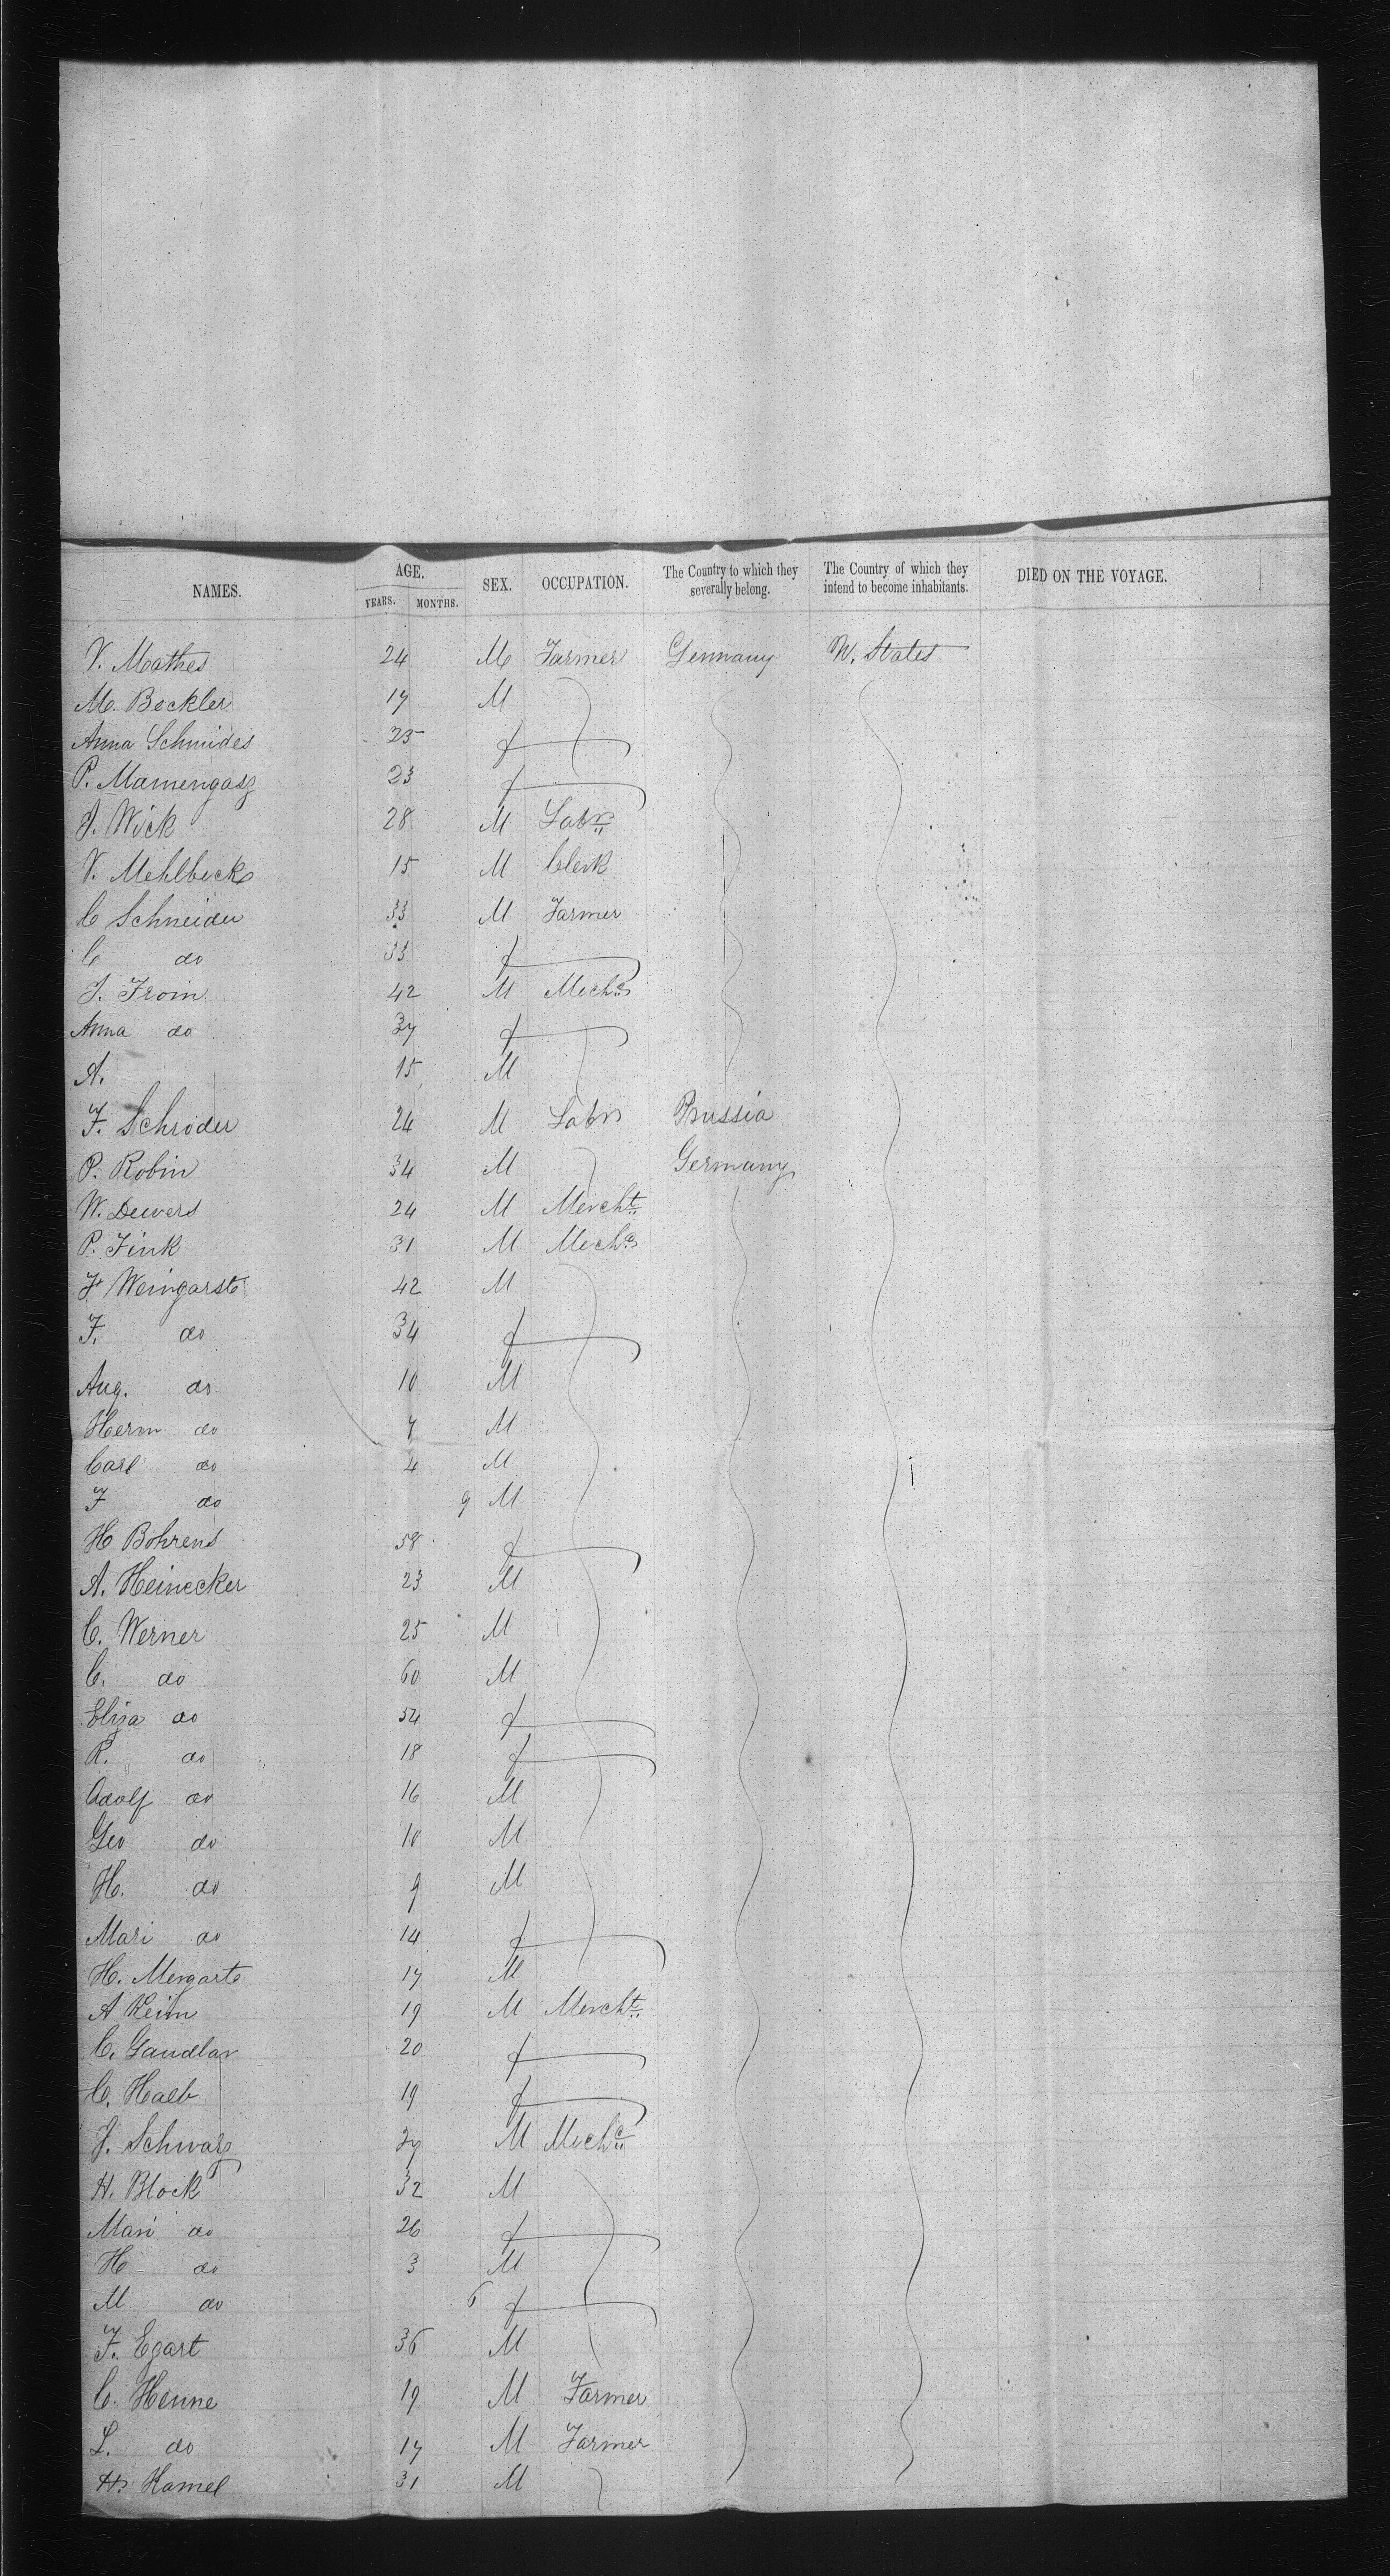 NAMES. AGE. YEARS. MONTHS. SEX. OCCUPATION. The Country to which they severally belong. The Country of which they intend to become inhabitants. DIED ON THE VOYAGE.
V. Mathes 24 M Farmer Germany U. States
M. Beckler 17 M
Anna Schmides 25 f
P. Mamengasz 23 f
J. Wick 28 M Labr
V. Mehlbeck 15 M Clerk
C Schneider 33 M Farmer
C do 33 f
J. Froin 42 M Mechc
Anna do 37 f
A. 15 M
F. Schroder 24 M Labr Prussia
P. Robin 34 M Germany
W. Deevers 24 M Mercht
P. Fink 31 M Mechc
F Weingarst 42 M
F. do 34 f
Aug. do 10 M
Herm do 7 M
Carl do 4 M
F do 9 M
H Bohrens 58 f
A. Heinecker 23 M
C. Werner 25 M
C. do 60 M
Eliza do 54 f
R. do 18 f
Adolf do 16 M
Geo do 10 M
H. do 9 M
Mari do 14 f
H. Mengarte 17 M
A Keim 19 M Mercht
C. Gaudlar 20 f
C. Haeb 19 f
J. Schwarz 27 M Mechc
H. Block 32 M
Mari do 26 f
H do 3 M
M do 6 f
F. Egart 36 M
C. Henne 19 M Farmer
L. do 17 M Farmer
H. Hamel 31 M